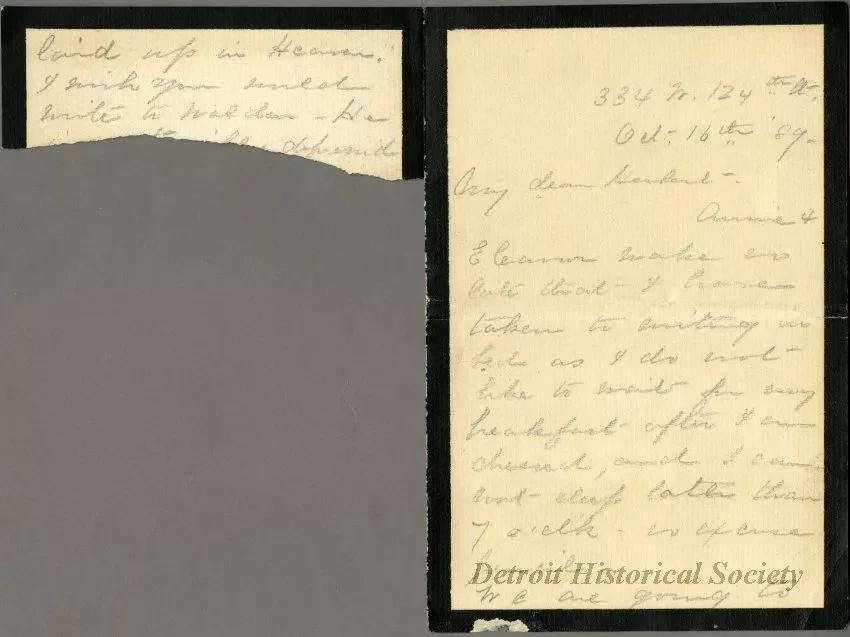 laid up in Heaven.
I wish you would
write to Walden - He
depend
334 W. 124th St.
Oct. 16th '89.
My dear Herbert -
Annie &
Eleanor wake so
late that I have
taken to writing in
bed as I do not
like to wait for my
breakfast after I am
dressed, and I can
not sleep later than
7 o'clk - so excuse
We are going to
Detroit Historical Society